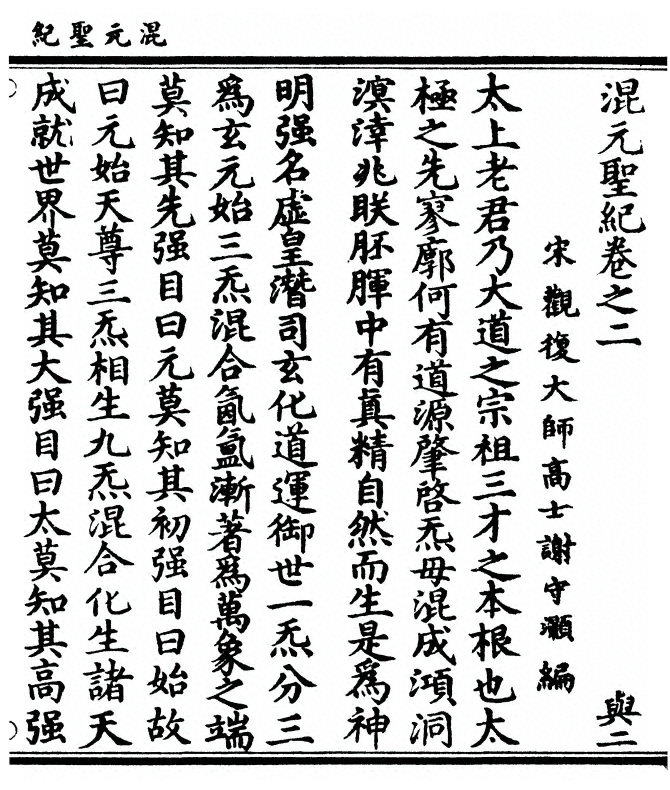 混元聖紀
混元聖紀卷之二
與二
宋觀復大師高士謝守灝編
太上老君乃大道之宗祖三才之本根也太
極之先寥廓何有道源肇啓炁毋混成澒洞
溟涬兆眹胚腪中有真精自然而生是爲神
明强名虛皇潛司玄化道運御世一炁分三
爲玄元始三炁混合氤氳漸著爲萬象之端
莫知其先强目曰元莫知其初强目曰始故
曰元始天尊三炁相生九炁混合化生諸天
成就世界莫知其大强目曰太莫知其高强